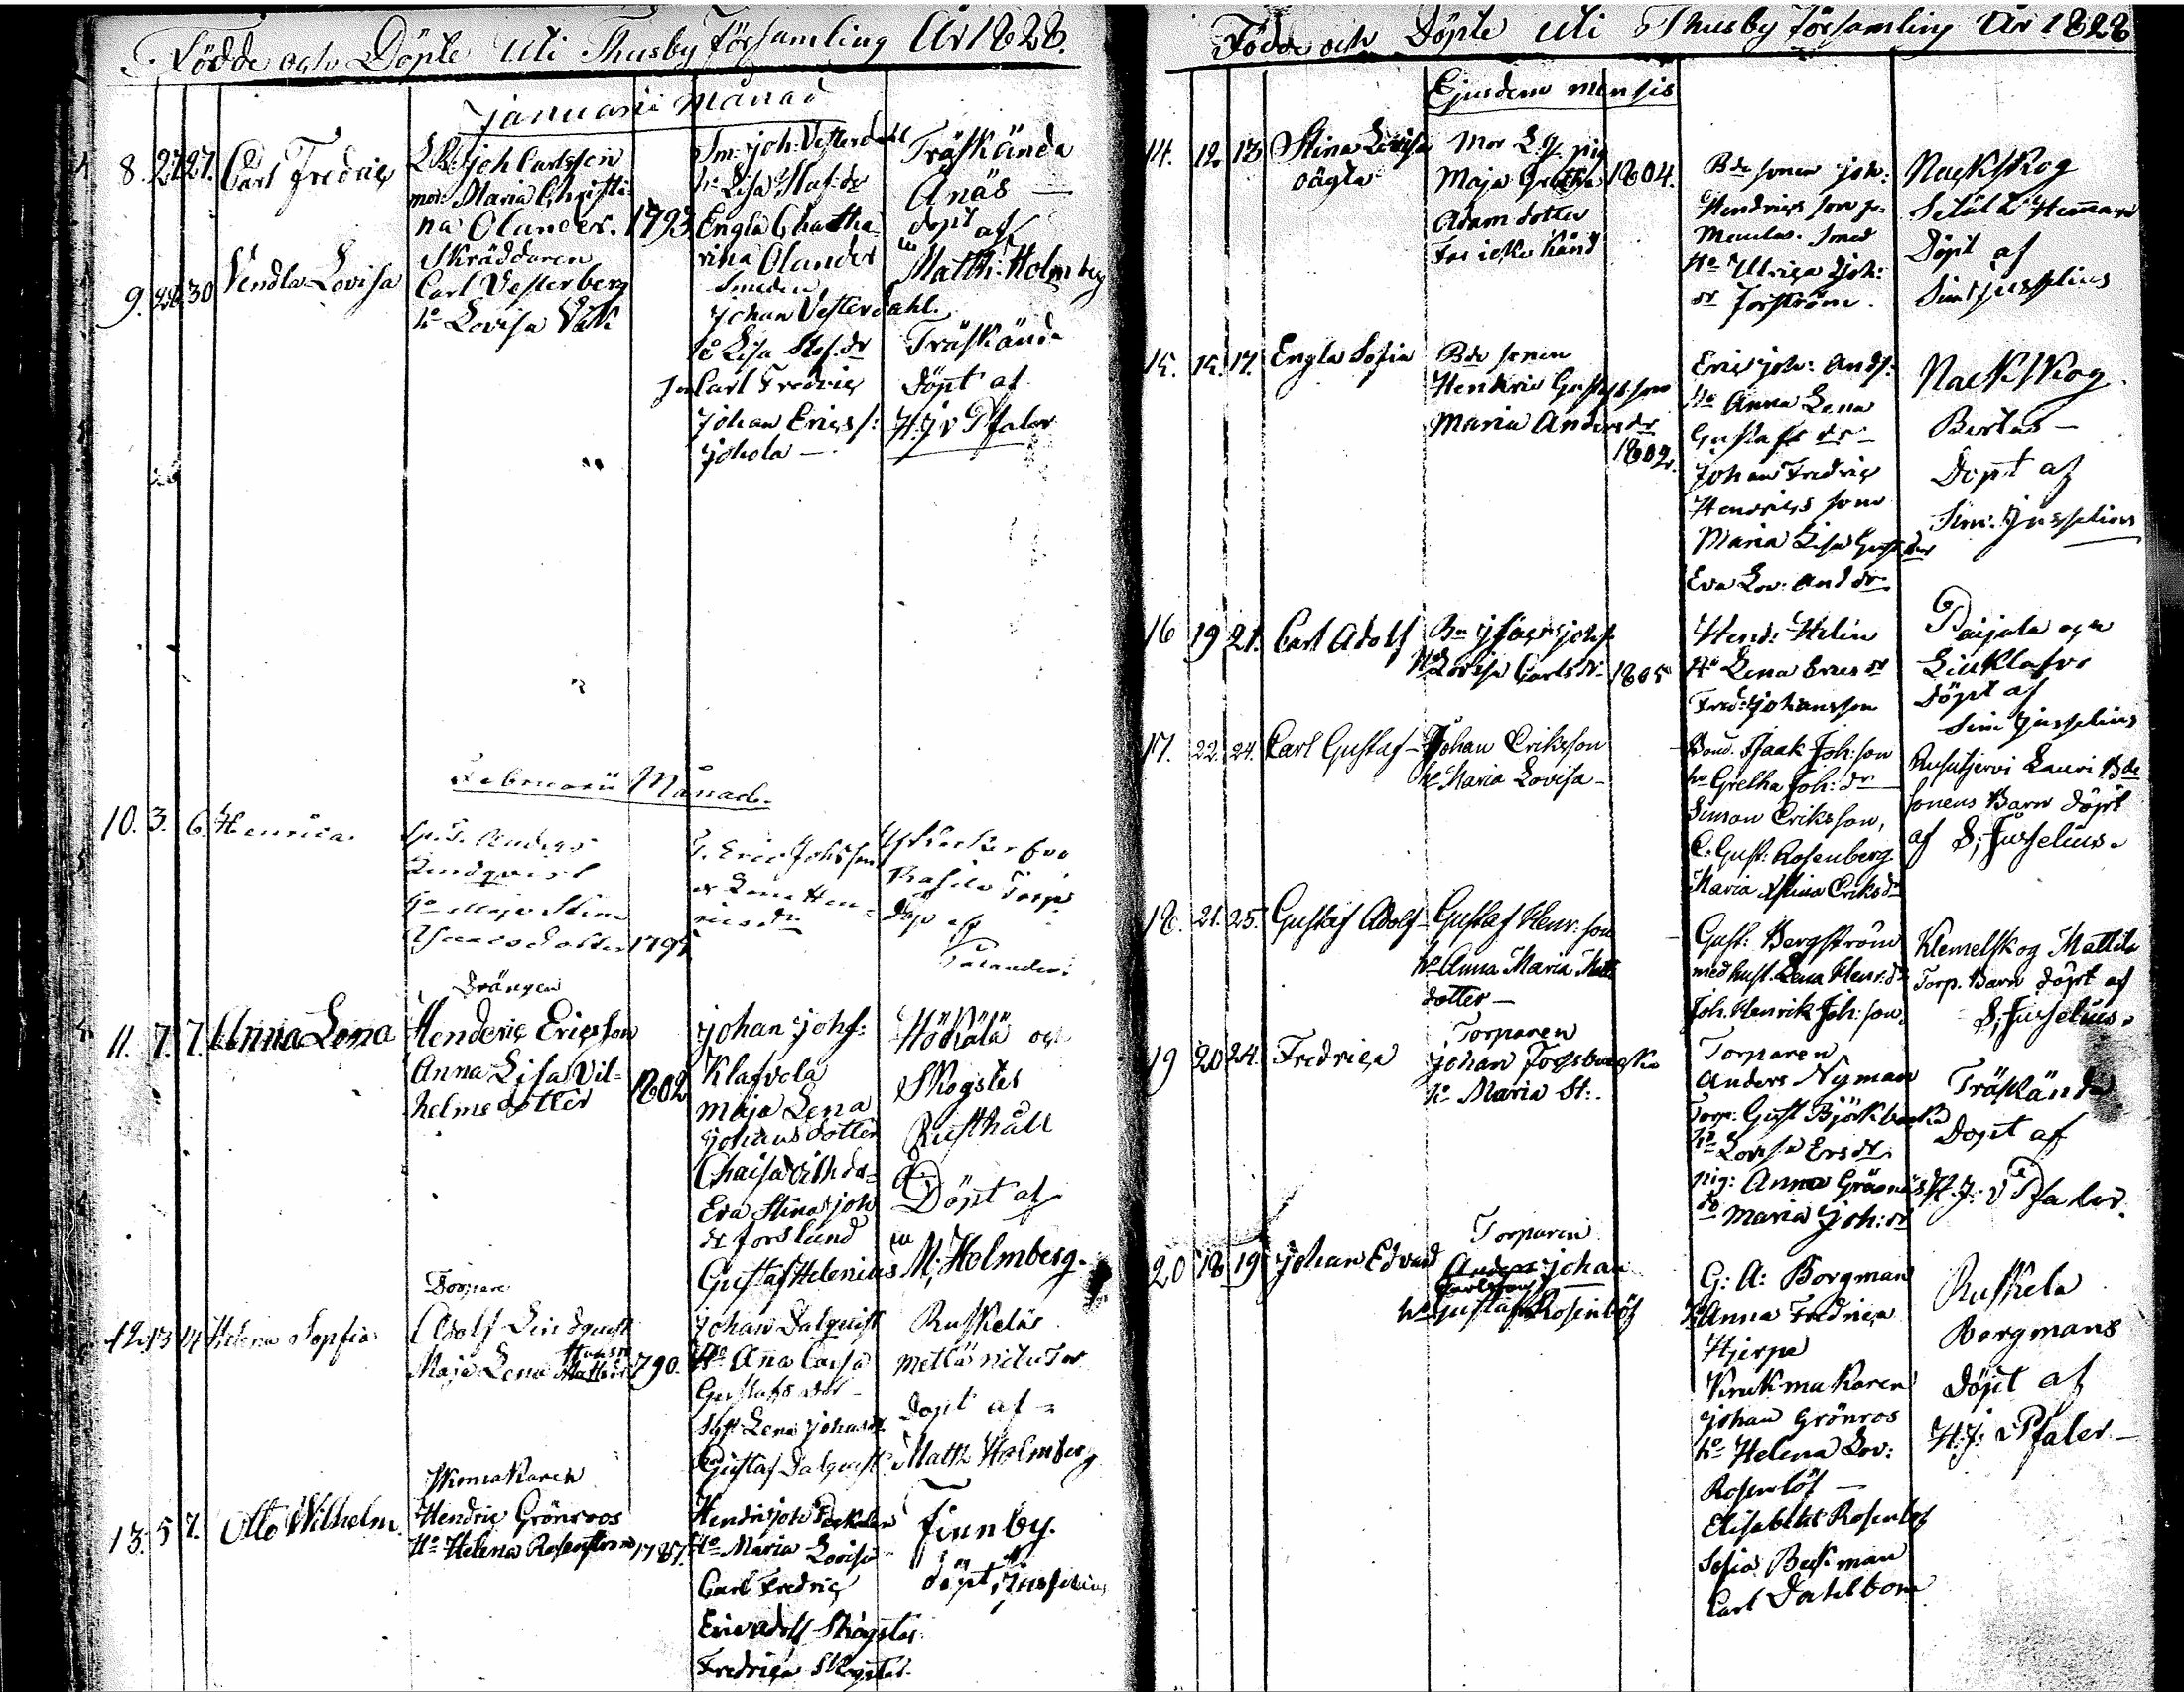 Födde och Döpte uti Thusby Församling År 1828.
Januari Månad
8. 27. 27. Carl Fredric
Joh Carlsson
mor: Maria Christi
na Olander. 1793
Sm: Joh: Vesterdahl
ho Lisa Staf: dr
Engla Chatha
rina Olander
Träskända
Anäs —
döpt af
Matth: Holmberg
9. 28 30 Vendla Lovisa
Skräddaren
Carl Vesterberg
ho Lovisa
Smeden
Johan Vesterdahl.
ho Lisa Staf. dr
Carl Fredric
Johan Ericss:
Johola —
Träskända
döpt af
H. J v Pfaler
Februarii Månad.
10. 3. 6. Henrica.
Anders
Lindqvist
ho Maja Stina
Isaacsdotter 179
T. Eric Johsson
Lena Hen=
ricsdr
Torp
döp af
11. 7. 7. Anna Lena
Drängen
Henderic Ericsson
Anna Lisa Vil=
helmsdotter 1802
Johan Johs:
Klafvola
Maja Lena
Johansdotter
Eva Stina Joh
dr Forslund
Gustaf Helenius
Hökälä och
Skogster
Rusthåll
Döpt af
M: Holmberg.
12. 13 14 Helena Sopfia
Torpare
Adolf Lindquist
Maja Lena 1790.
Johan Dalquist
Ho Ana Caisa
Gustafs dotr
Lena Johans dr
Gustaf Dalquist
Ruskela
döpt af
Math Holmberg
13. 5 7. Otto Wilhelm.
Skomakaren
Hendric Grönroos
Ho Helena Rosenström 1787.
Hendric Joh
Ho Maria Lovisa
Carl Fredric
Eric Adolf Skogster
Fredrica Skogster
Finnby.
döpt Jusselius
Födde och Döpte uti Thusby Församling År 1828
Ejusdem mensis
14. 12. 13 Stina Lovisa
oägta
Mor
Maja Gretha 1804.
Adam dotter
Far icke känd
Bdesonen Joh:
Hendricsson
Ho Ulrica Joh:
dr Forström.
Nackskog
Döpt af
Sim Jusselius
15. 15. 17. Engla Sofia
Bde sonen
Hendric Gustafsson
Maria Andersdr
1802.
Eric Joh: Ands:
Ho Anna Lena
Gustafs dr
Johan Fredric
Henrics son
Maria Lisa Gust dr
Eva Lov: And dr
Nackskog.
Bertas —
Döpt af
Sim: Jusselius
16 19 21. Carl Adolf
Bn Isac Johs
Ho Lovisa Carlsdr 1805
Hend: Helin
Ho Lena Erics dr
Fred: Johansson
Paijala och
döpt af
Sim Jusselius
17. 22. 24. Carl Gustaf —
Johan Eriksson
ho Maria Lovisa —
Bond. Isaak Joh: son
ho Gretha Joh: dr
Simon Eriksson,
C. Gust: Rosenberg
Maria Stina Eriksdr
Rusutjervi Lauri Bde
sonens Barn döpt
af S. Jusselius.
18. 21. 25. Gustaf Adolf —
Gustaf Henr: son
ho Anna Maria Matts
dotter —
Gust: Bergström
med hust. Lena Henr: dr
Joh. Henrik Joh: son.
Klemetskog Mattila
Torp. Barn döpt af
S. Jusselius.
19 20 24. Fredrica
Torparen
Johan Forsbacka
ho Maria St:
Torparen
Anders Nyman
Torp: Gust Björkbacka
ho Lovisa Ersdr
pig: Anna Grönroos
do Maria Joh: dr
Träskända
Döpt af
H. J: v Pfaler.
20 18 19 Johan Edvard
Torparen
Johan
Carlsson
ho Gustafva Rosenlöf
G: A: Borgman
ho Anna Fredrica
Hjerpe
Krukmakaren
Johan Grönros
ho Helena Lov:
Rosenlöf —
Elisabeth Rosenlöf
Sofia Beckman
Carl Dahlbom
Ruskela
Borgmans
Döpt af
H. J: v Pfaler —